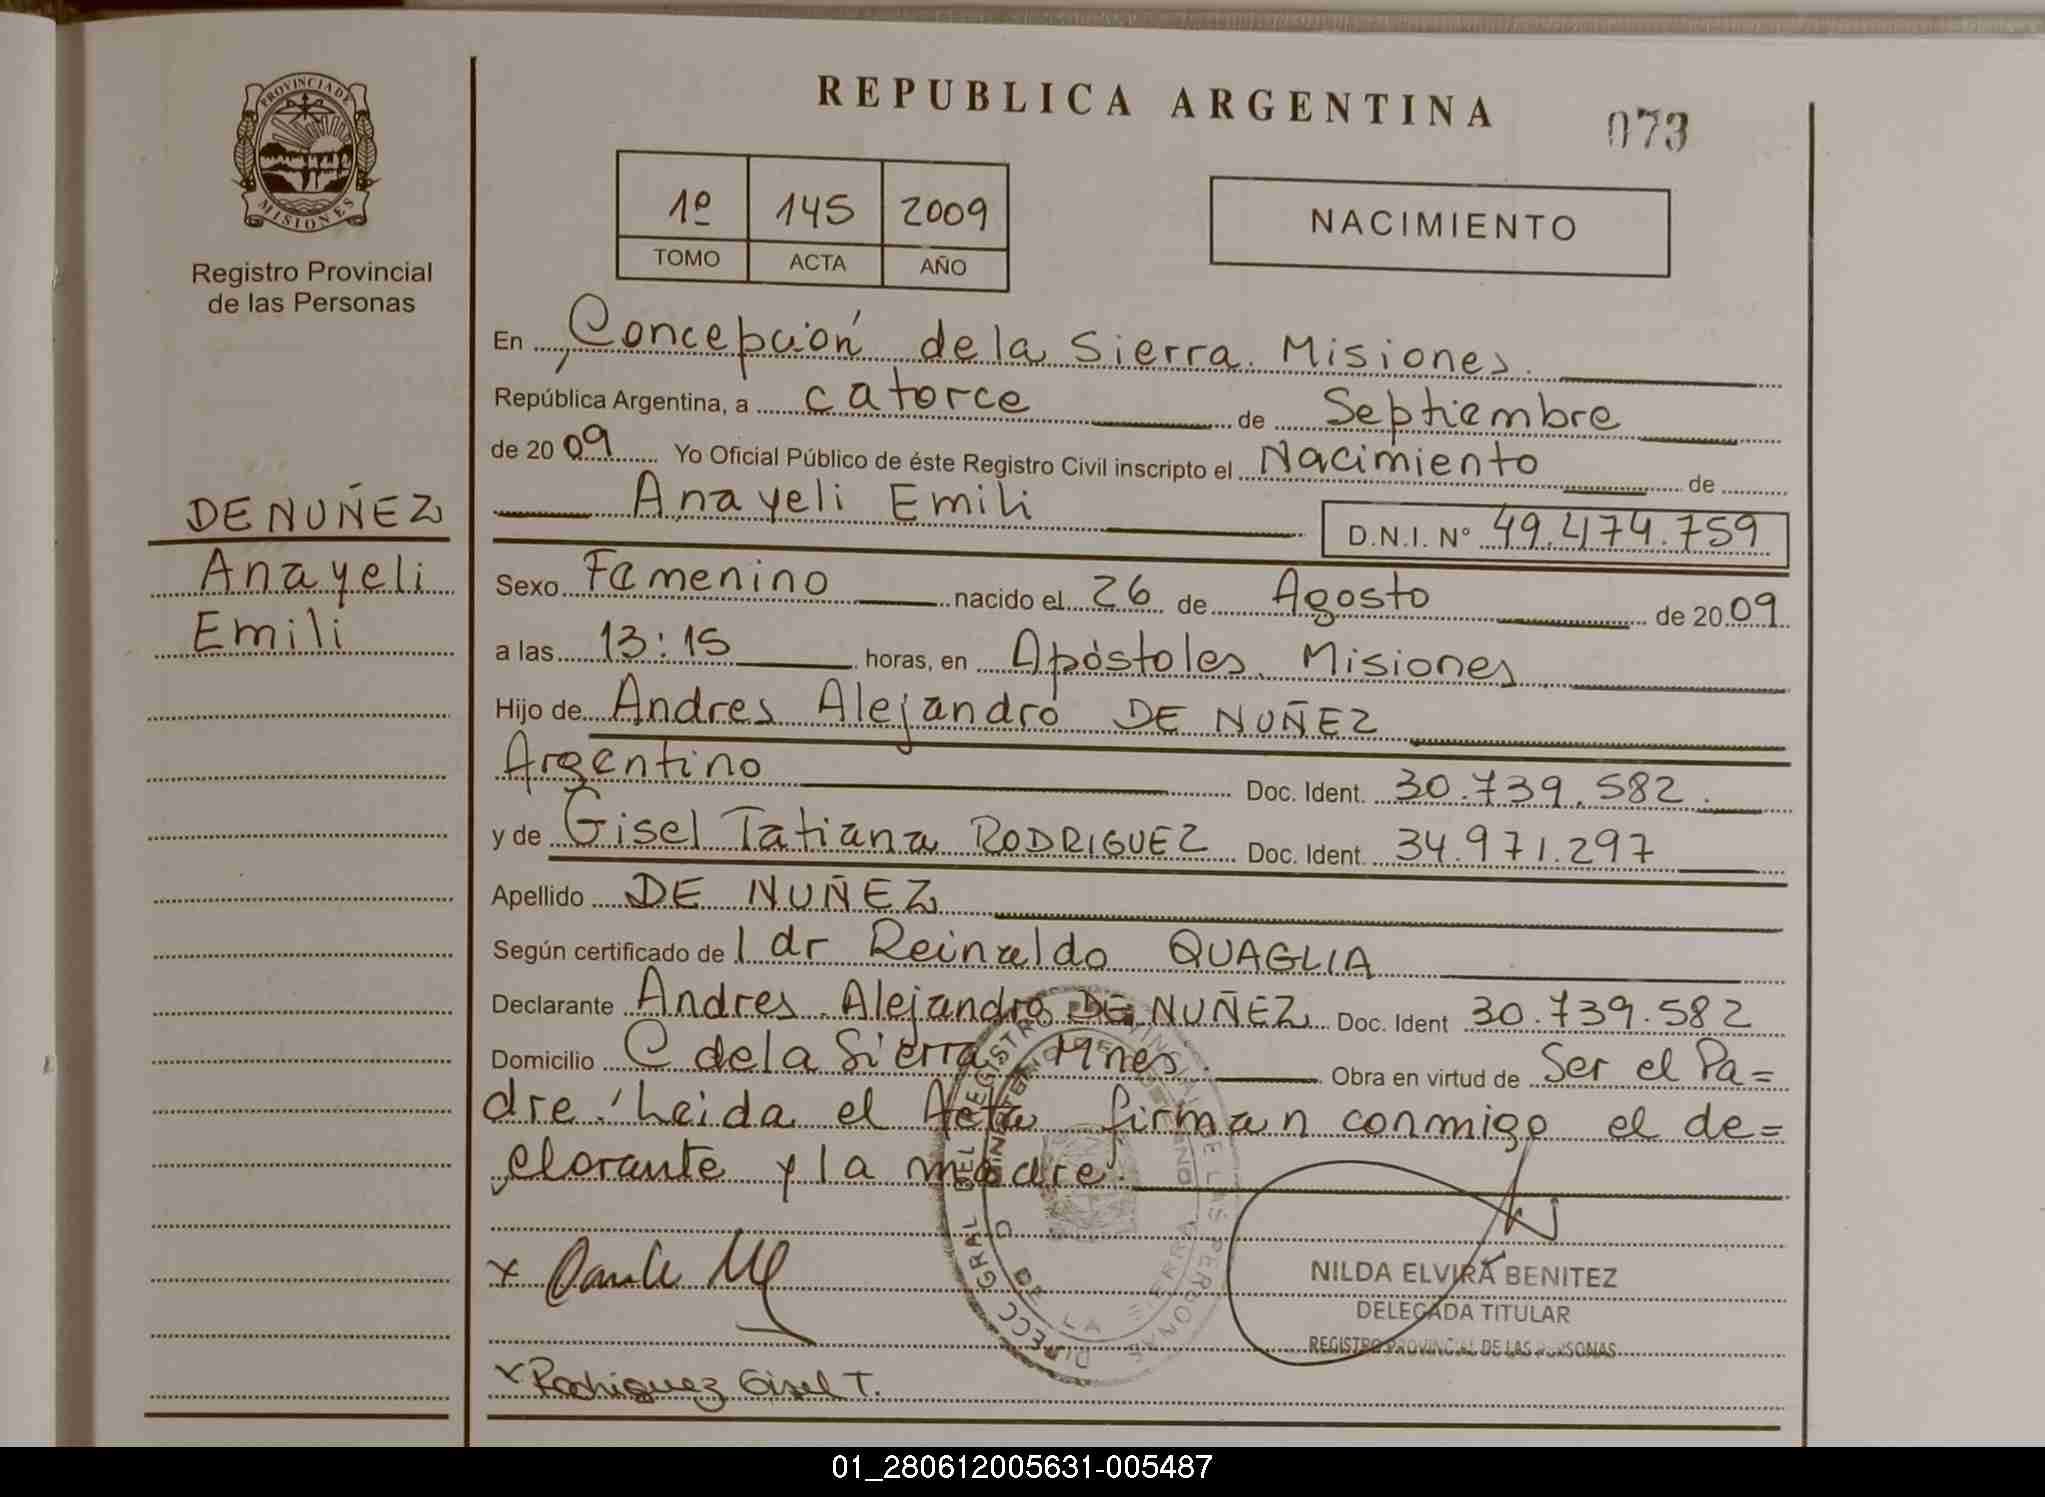 PROVINCIA DE
MISIONES
Registro Provincial
de las Personas
DE NUÑEZ
Anayeli
Emili
REPUBLICA ARGENTINA
073
1º 145 2009
TOMO ACTA AÑO
NACIMIENTO
En Concepción de la Sierra. Misiones.
República Argentina, a catorce de Septiembre
de 2009 Yo Oficial Público de éste Registro Civil inscripto el Nacimiento de
Anayeli Emili D.N.I. Nº 49.474.759
Sexo Femenino nacido el 26 de Agosto de 2009
a las 13:15 horas, en Apóstoles. Misiones
Hijo de Andres Alejandro DE NUÑEZ
Argentino Doc. Ident. 30.739.582.
y de Gisel Tatiana RODRIGUEZ Doc. Ident. 34.971.297
Apellido DE NUÑEZ
Según certificado de l dr Reinaldo QUAGLIA
Declarante Andres Alejandro DE NUÑEZ Doc. Ident 30.739.582
Domicilio C de la Sierra Mnes. Obra en virtud de Ser el Pa=
dre. Leida el Acta firman conmigo el de=
clarante y la madre.
DIRECC GRAL DEL REGISTRO PROVINCIAL DE LAS PERSONAS
NILDA ELVIRA BENITEZ
DELEGADA TITULAR
REGISTRO PROVINCIAL DE LAS PERSONAS
x Rodriguez Gisel T.
01_280612005631-005487